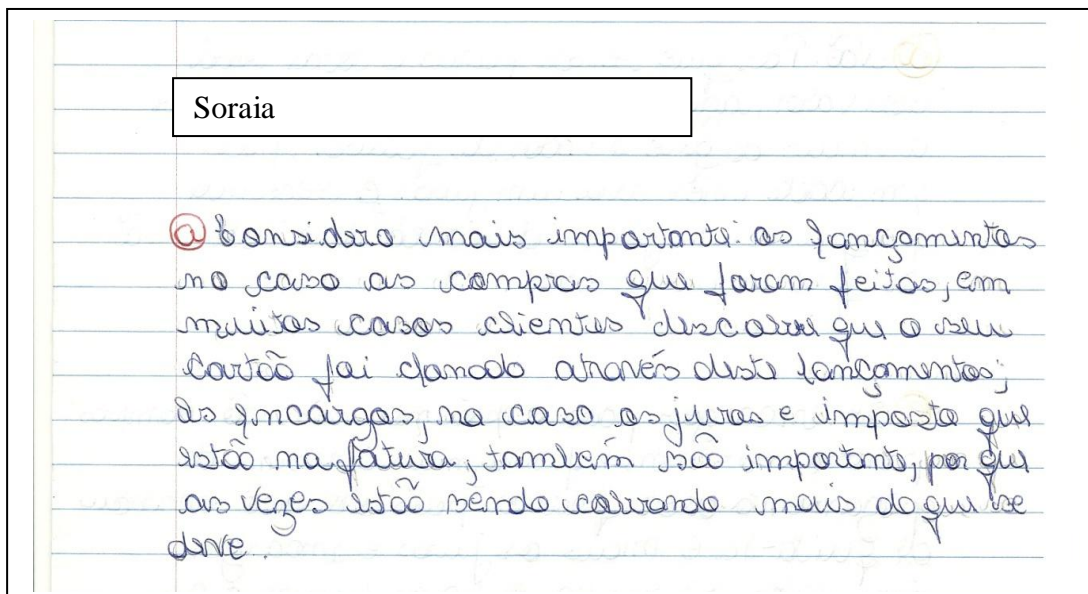 Soraia
a Considero mais importante: os lançamentos
no caso as compras que foram feitas, em
muitos casos clientes descobre que o seu
cartão foi clonado através deste lançamentos;
os encargos, no caso os juros e imposto que
estão na fatura, também são importante, por que
as vezes estão sendo cobrando mais do que se
deve.